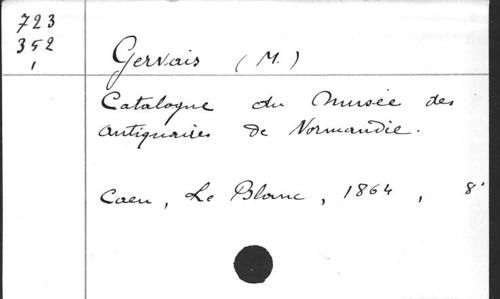 723
352
1
Gervais (M.)
Catalogue du Musée des
antiquaires de Normandie.
Caen, Le Blanc, 1864, 8°